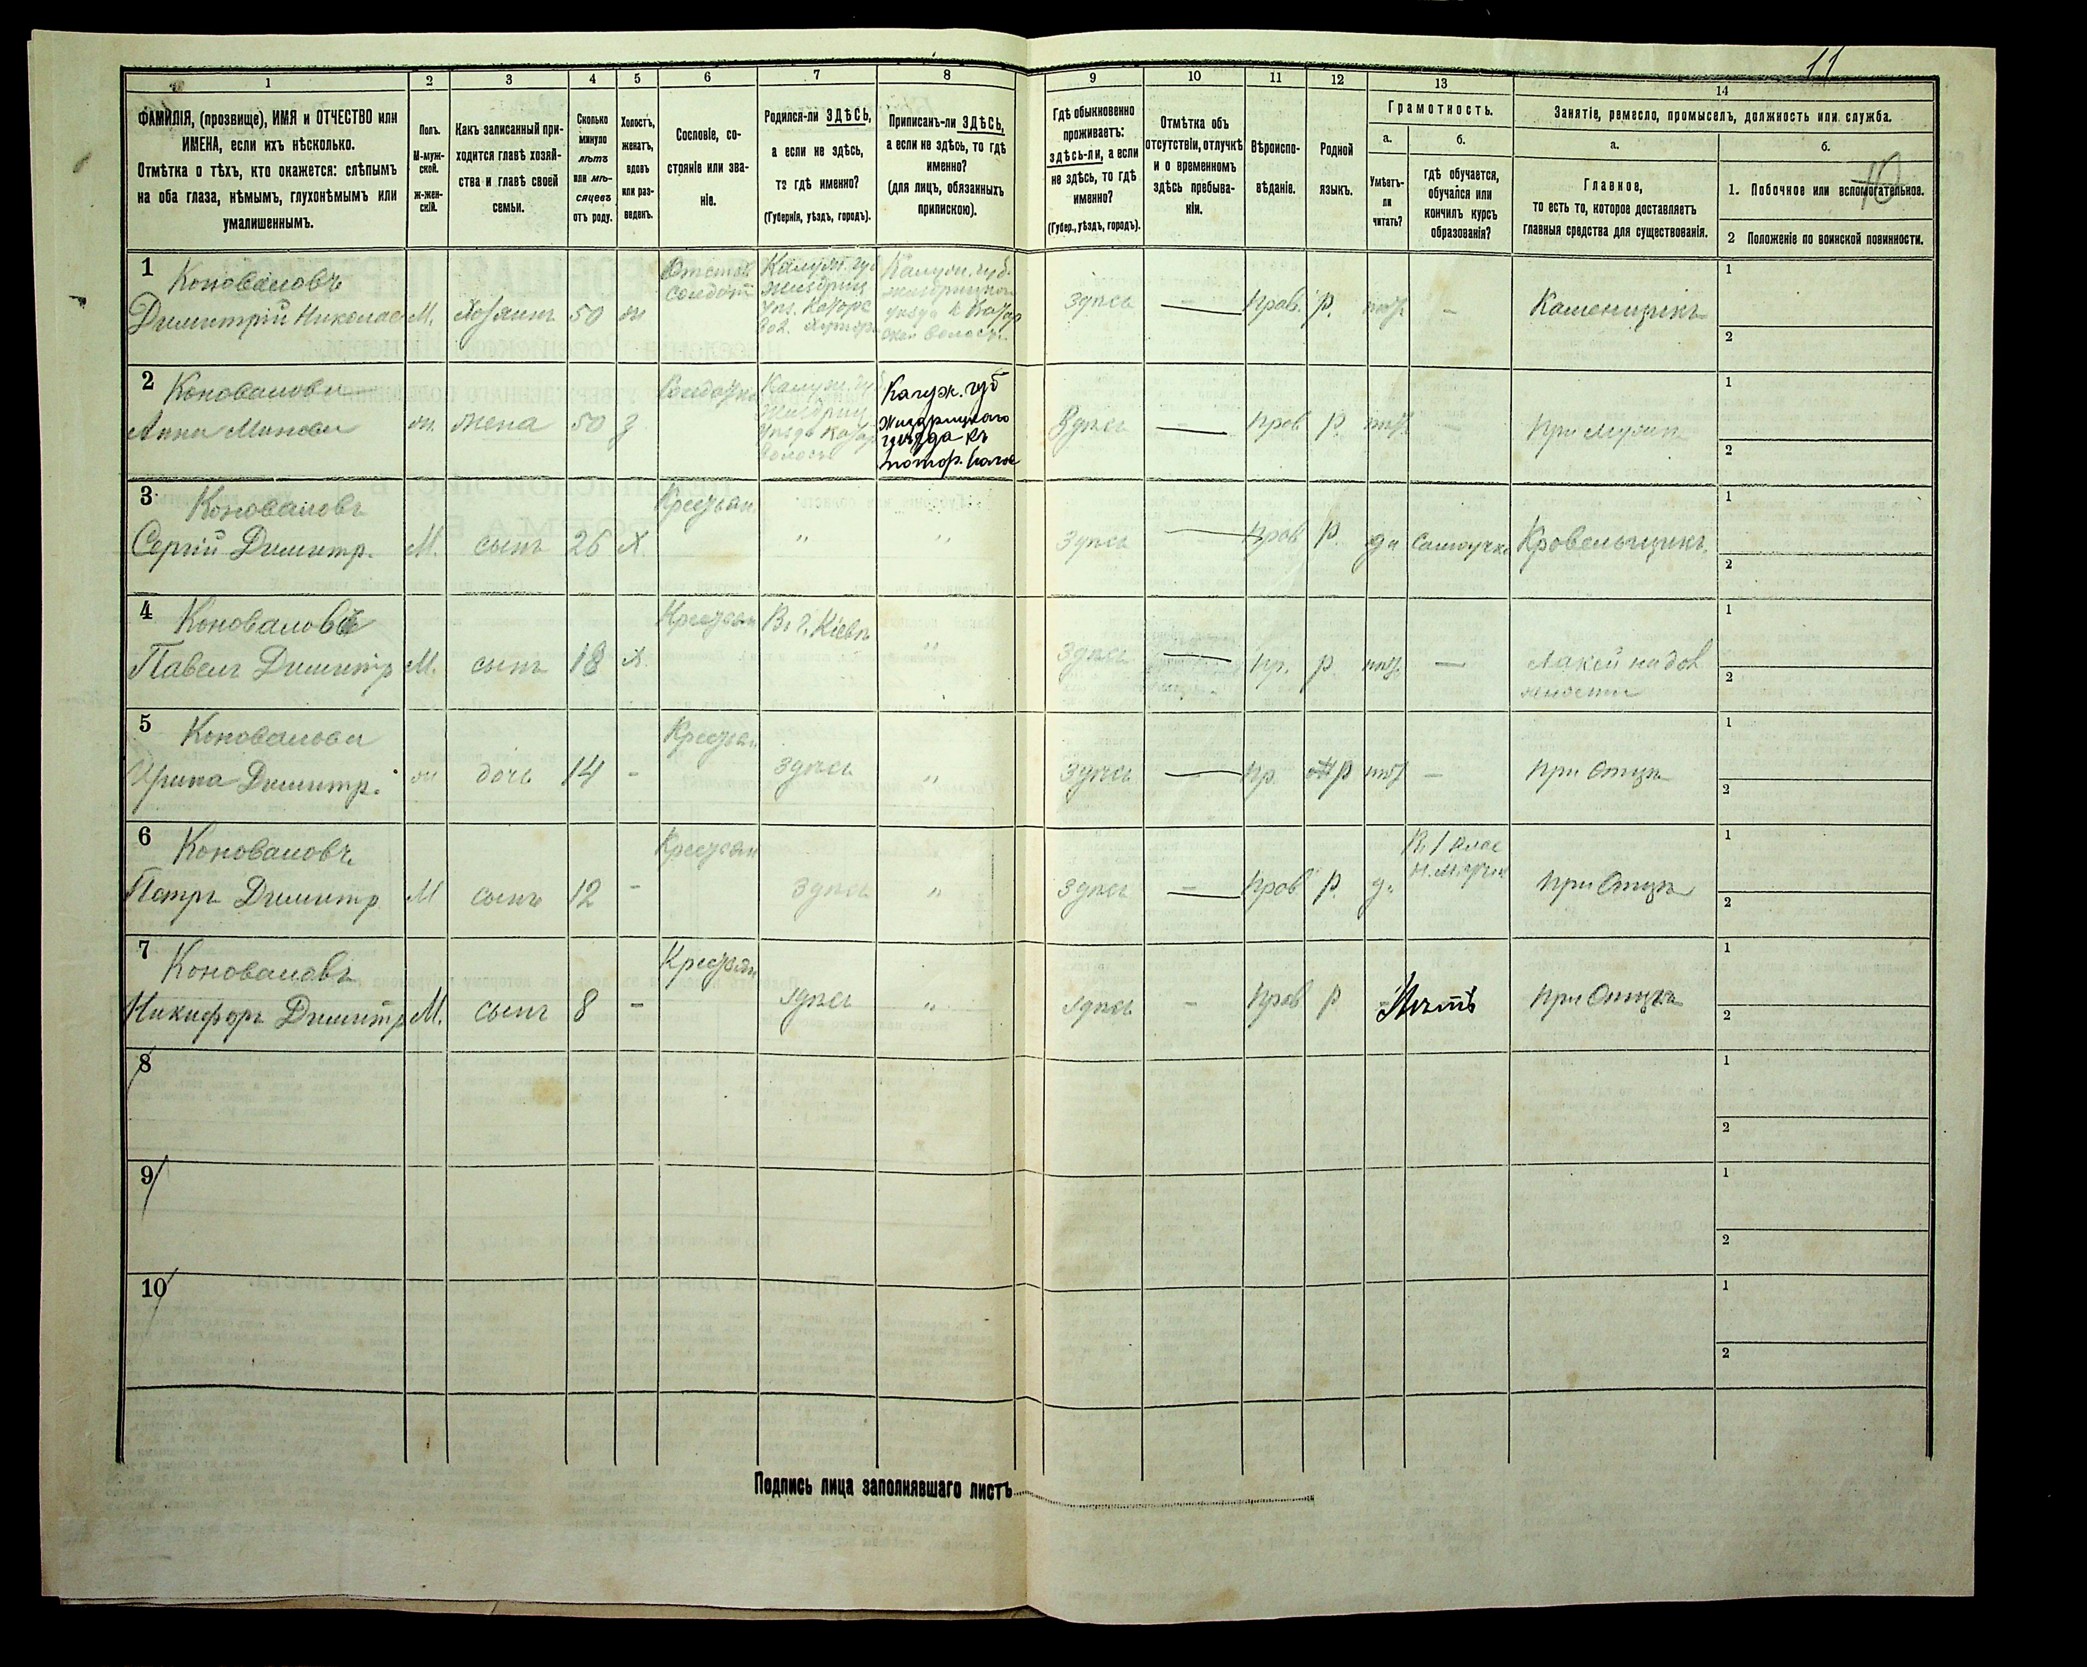 11
1 2 3 4 5 6 7 8 9 10 11 12 13 14
ФАМИЛІЯ, (прозвище), ИМЯ и ОТЧЕСТВО или
ИМЕНА, если ихъ нѣсколько.
Отмѣтка о тѣхъ, кто окажется: слѣпымъ
на оба глаза, нѣмымъ, глухонѣмымъ или
умалишеннымъ.
Полъ.
М-муж-
ской.
ж-жен-
скій.
Какъ записанный при-
ходится главѣ хозяй-
ства и главѣ своей
семьи.
Сколько
минуло
лѣтъ
или мѣ-
сяцевъ
отъ роду.
Холостъ,
женатъ,
вдовъ
или раз-
веденъ.
Сословіе, со-
стояніе или зва-
ніе.
Родился-ли ЗДѢСЬ,
а если не здѣсь,
то гдѣ именно?
(Губернія, уѣздъ, городъ).
Приписанъ-ли ЗДѢСЬ,
а если не здѣсь, то гдѣ
именно?
(для лицъ, обязанныхъ
припискою).
Гдѣ обыкновенно
проживаетъ:
здѣсь-ли, а если
не здѣсь, то гдѣ
именно?
(Губер., уѣздъ, городъ).
Отмѣтка объ
отсутствіи, отлучкѣ
и о временномъ
здѣсь пребыва-
ніи.
Вѣроиспо-
вѣданіе.
Родной
языкъ.
Грамотность.
а.
Умѣетъ-
ли
читать?
б.
гдѣ обучается,
обучался или
кончилъ курсъ
образованія?
Занятіе, ремесло, промыселъ, должность или служба.
а.
Главное,
то есть то, которое доставляетъ
главныя средства для существованія.
б.
10
1. Побочное или вспомогательное.
2 Положеніе по воинской повинности.
1
Коноваловъ
Димитрій Николае М. Хозяинъ 50 ж
Отстав
солдат
Калуж. губ
Жиздриц
Калуж. губ.
здѣсь — Прав. р. — Каменщикъ
1
2
2
Коновалова
Анна ж. жена 50 з
Солдатка
Калуж. губ
Калуж. губ
Жиздрицкаго
уѣзда къ
Здѣсь — Прав р. — при мужѣ
1
2
3
Коноваловъ
Сергій Димитр. М. сынъ 26 Х.
Крестьян
" "
Здѣсь — Прав р. да самоучка Кровельщикъ
1
2
4
Коноваловъ
Павелъ Димитр М. сынъ 18 Х.
Крестьян
В. г. Кіевѣ
"
Здѣсь — пр. р. — Лакей
1
2
5
Коновалова
Ирина Димитр. ж дочь 14 -
Крестьян
Здѣсь "
Здѣсь — пр. р — при Отцѣ
1
2
6
Коноваловъ
Петръ Димитр М сынъ 12 -
Крестьян
Здѣсь "
Здѣсь — Прав р. да
В. 1 клас
при Отцѣ
1
2
7
Коноваловъ
Никифоръ Димитр М. сынъ 8 -
Крестьян
здѣсь "
здѣсь - Прав р Нѣтъ при Отцѣ
1
2
8
1
2
9
1
2
10
1
2
Подпись лица заполнявшаго листъ